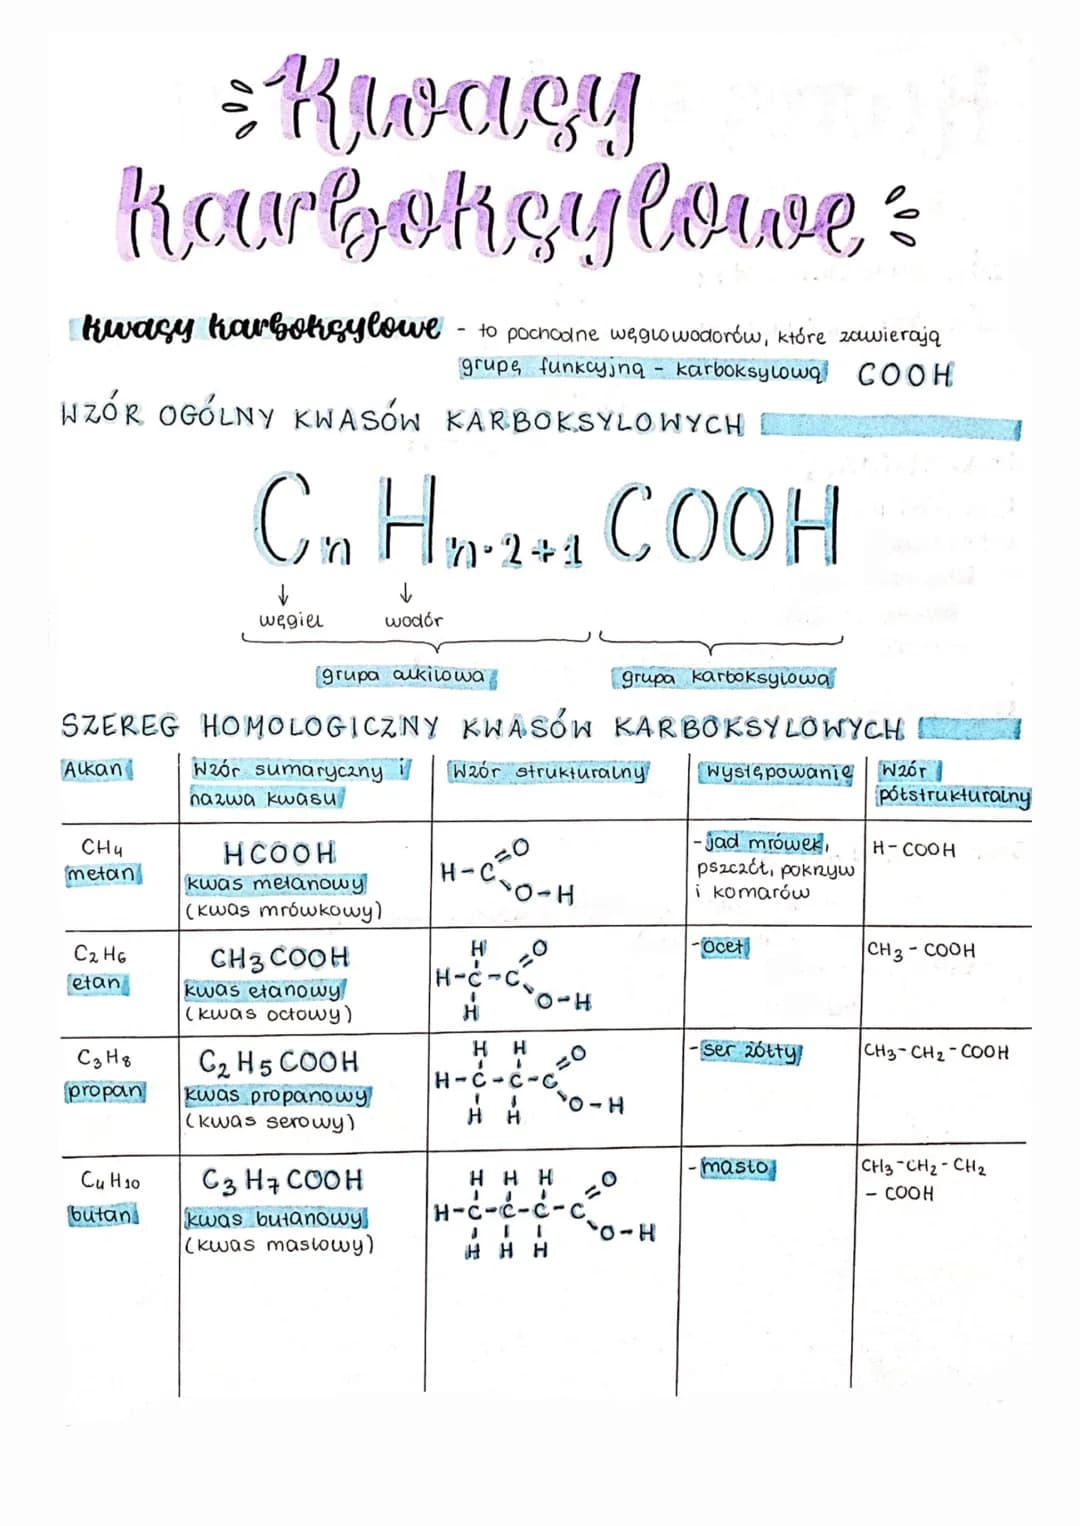 Kwasy
karboksylowe
kwasy karboksylowe - to pochodne węglowodorów, które zawierają
grupę funkcyjną - karboksylową COOH
WZÓR OGÓLNY KWASÓW KARBOKSYLOWYCH
Cn Hn·2+1 COOH
↓ ↓
węgiel wodór
grupa alkilowa grupa karboksylowa
SZEREG HOMOLOGICZNY KWASÓW KARBOKSYLOWYCH
Alkan
Wzór sumaryczny i
nazwa kwasu
Wzór strukturalny
Występowanie
Wzór
półstrukturalny
CH4
metan
HCOOH
kwas metanowy
(kwas mrówkowy)
H-C=O
O-H
-jad mrówek,
pszczół, pokrzyw
i komarów
H-COOH
C2H6
etan
CH3COOH
kwas etanowy
(kwas octowy)
H O
H-C-C
H O-H
-ocet
CH3-COOH
C3H8
propan
C2H5COOH
kwas propanowy
(kwas serowy)
H H O
H-C-C-C
H H O-H
-ser żółty
CH3-CH2-COOH
C4H10
butan
C3H7COOH
kwas butanowy
(kwas masłowy)
H H H O
H-C-C-C-C
H H H O-H
-masło
CH3-CH2-CH2
-COOH